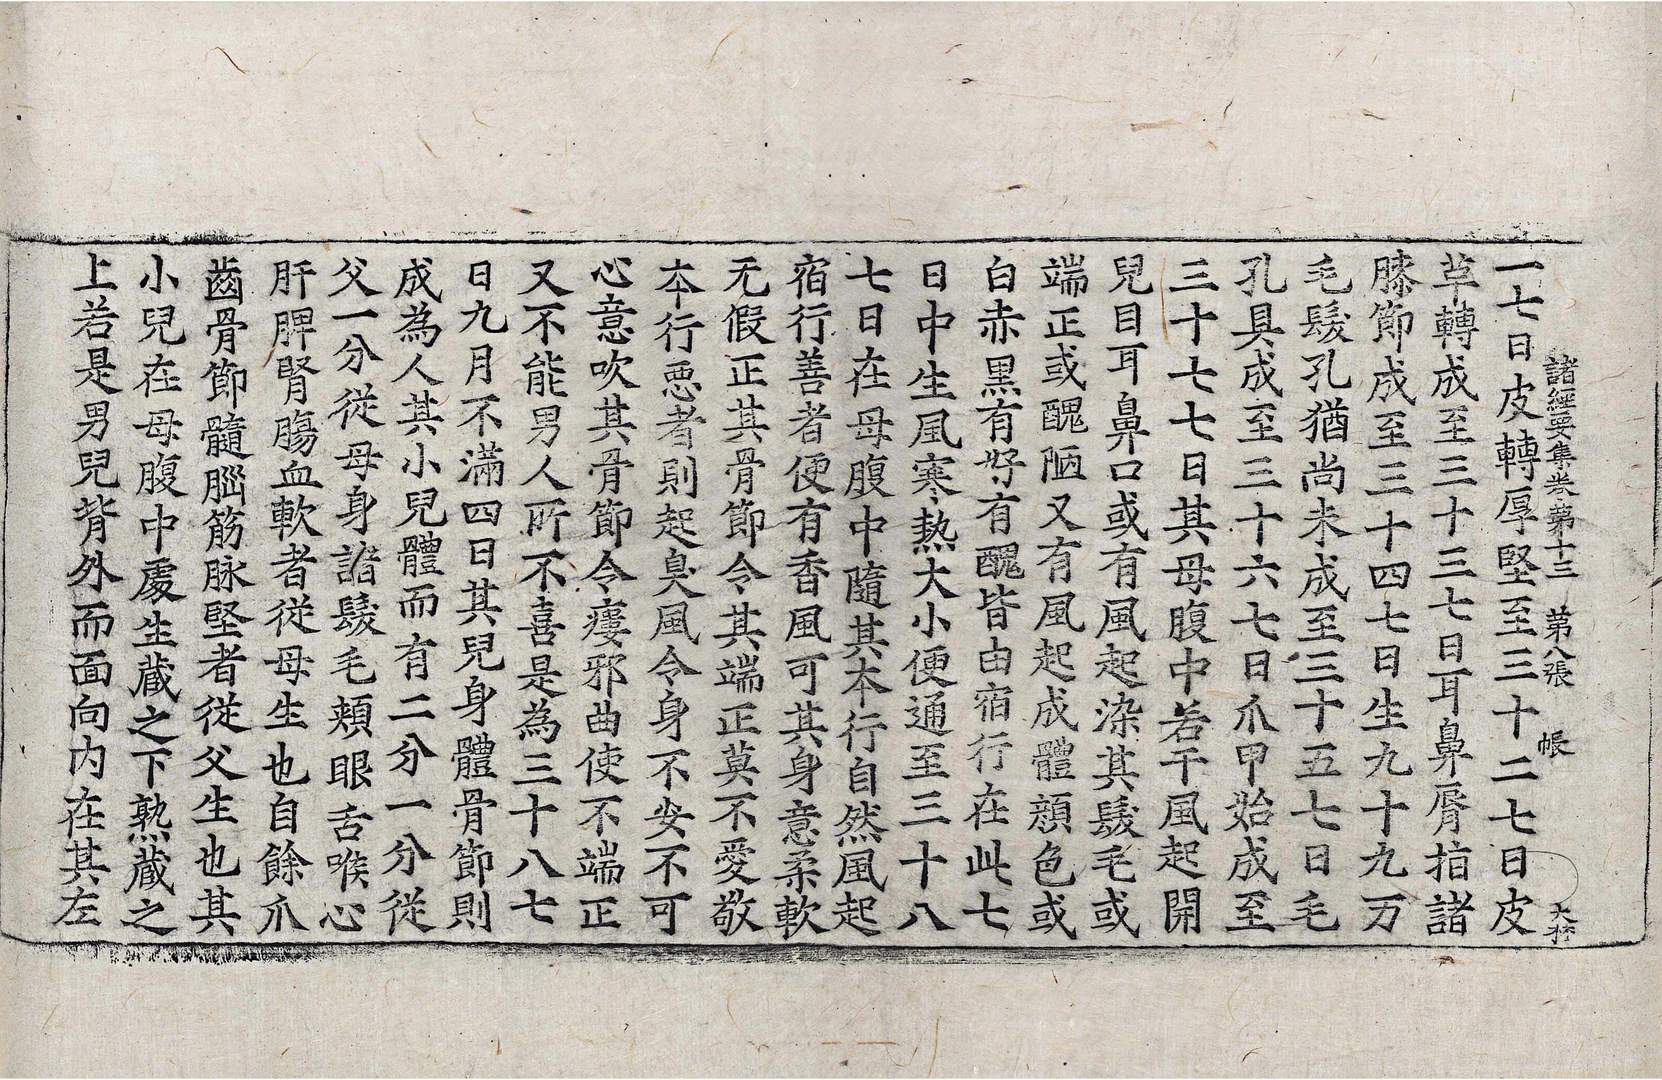 諸經要集卷第十三 第八張 帳 大才
一七日皮轉厚堅至三十二七日皮
草轉成至三十三七日耳鼻脣指諸
膝節成至三十四七日生九十九万
毛髮孔猶尚未成至三十五七日毛
孔具成至三十六七日爪甲始成至
三十七七日其母腹中若干風起開
兒目耳鼻口或有風起染其髮毛或
端正或醜陋又有風起成體顏色或
白赤黑有好有醜皆由宿行在此七
日中生風寒熱大小便通至三十八
七日在母腹中隨其本行自然風起
宿行善者便有香風可其身意柔軟
无假正其骨節令其端正莫不愛敬
本行惡者則起臭風令身不安不可
心意吹其骨節令瘻邪曲使不端正
又不能男人所不喜是為三十八七
日九月不滿四日其兒身體骨節則
成為人其小兒體而有二分一分從
父一分從母身諸髮毛頰眼舌喉心
肝脾腎腸血軟者從母生也自餘爪
齒骨節髓腦筋脉堅者從父生也其
小兒在母腹中處生藏之下熟藏之
上若是男兒背外而面向內在其左